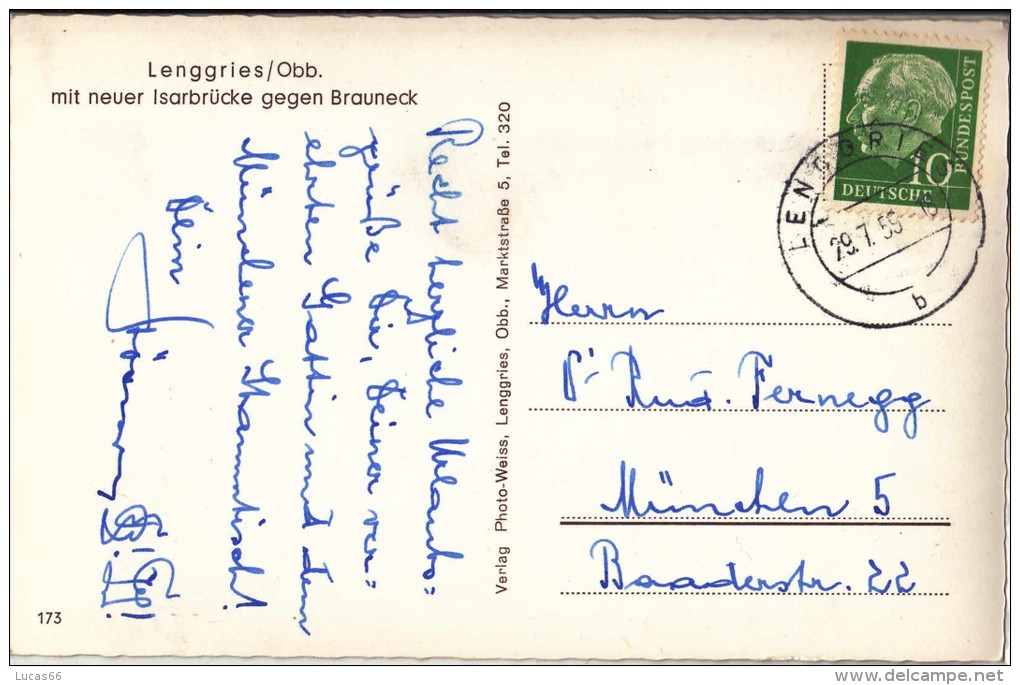 Lenggries/Obb.
mit neuer Isarbrücke gegen Brauneck
Recht herzliche Urlaubs=
grüße Dir, Deiner ver=
ehrten Gattin und dem
Münchner Stammtisch!
Dein
Verlag Photo-Weiss, Lenggries, Obb., Marktstraße 5, Tel. 320
DEUTSCHE
BUNDESPOST
10
LENGGRIES
29.7.59
b
Herrn
Rud. Fernegg
München 5
Baaderstr. 22
173
Lucas66
delcampe.net